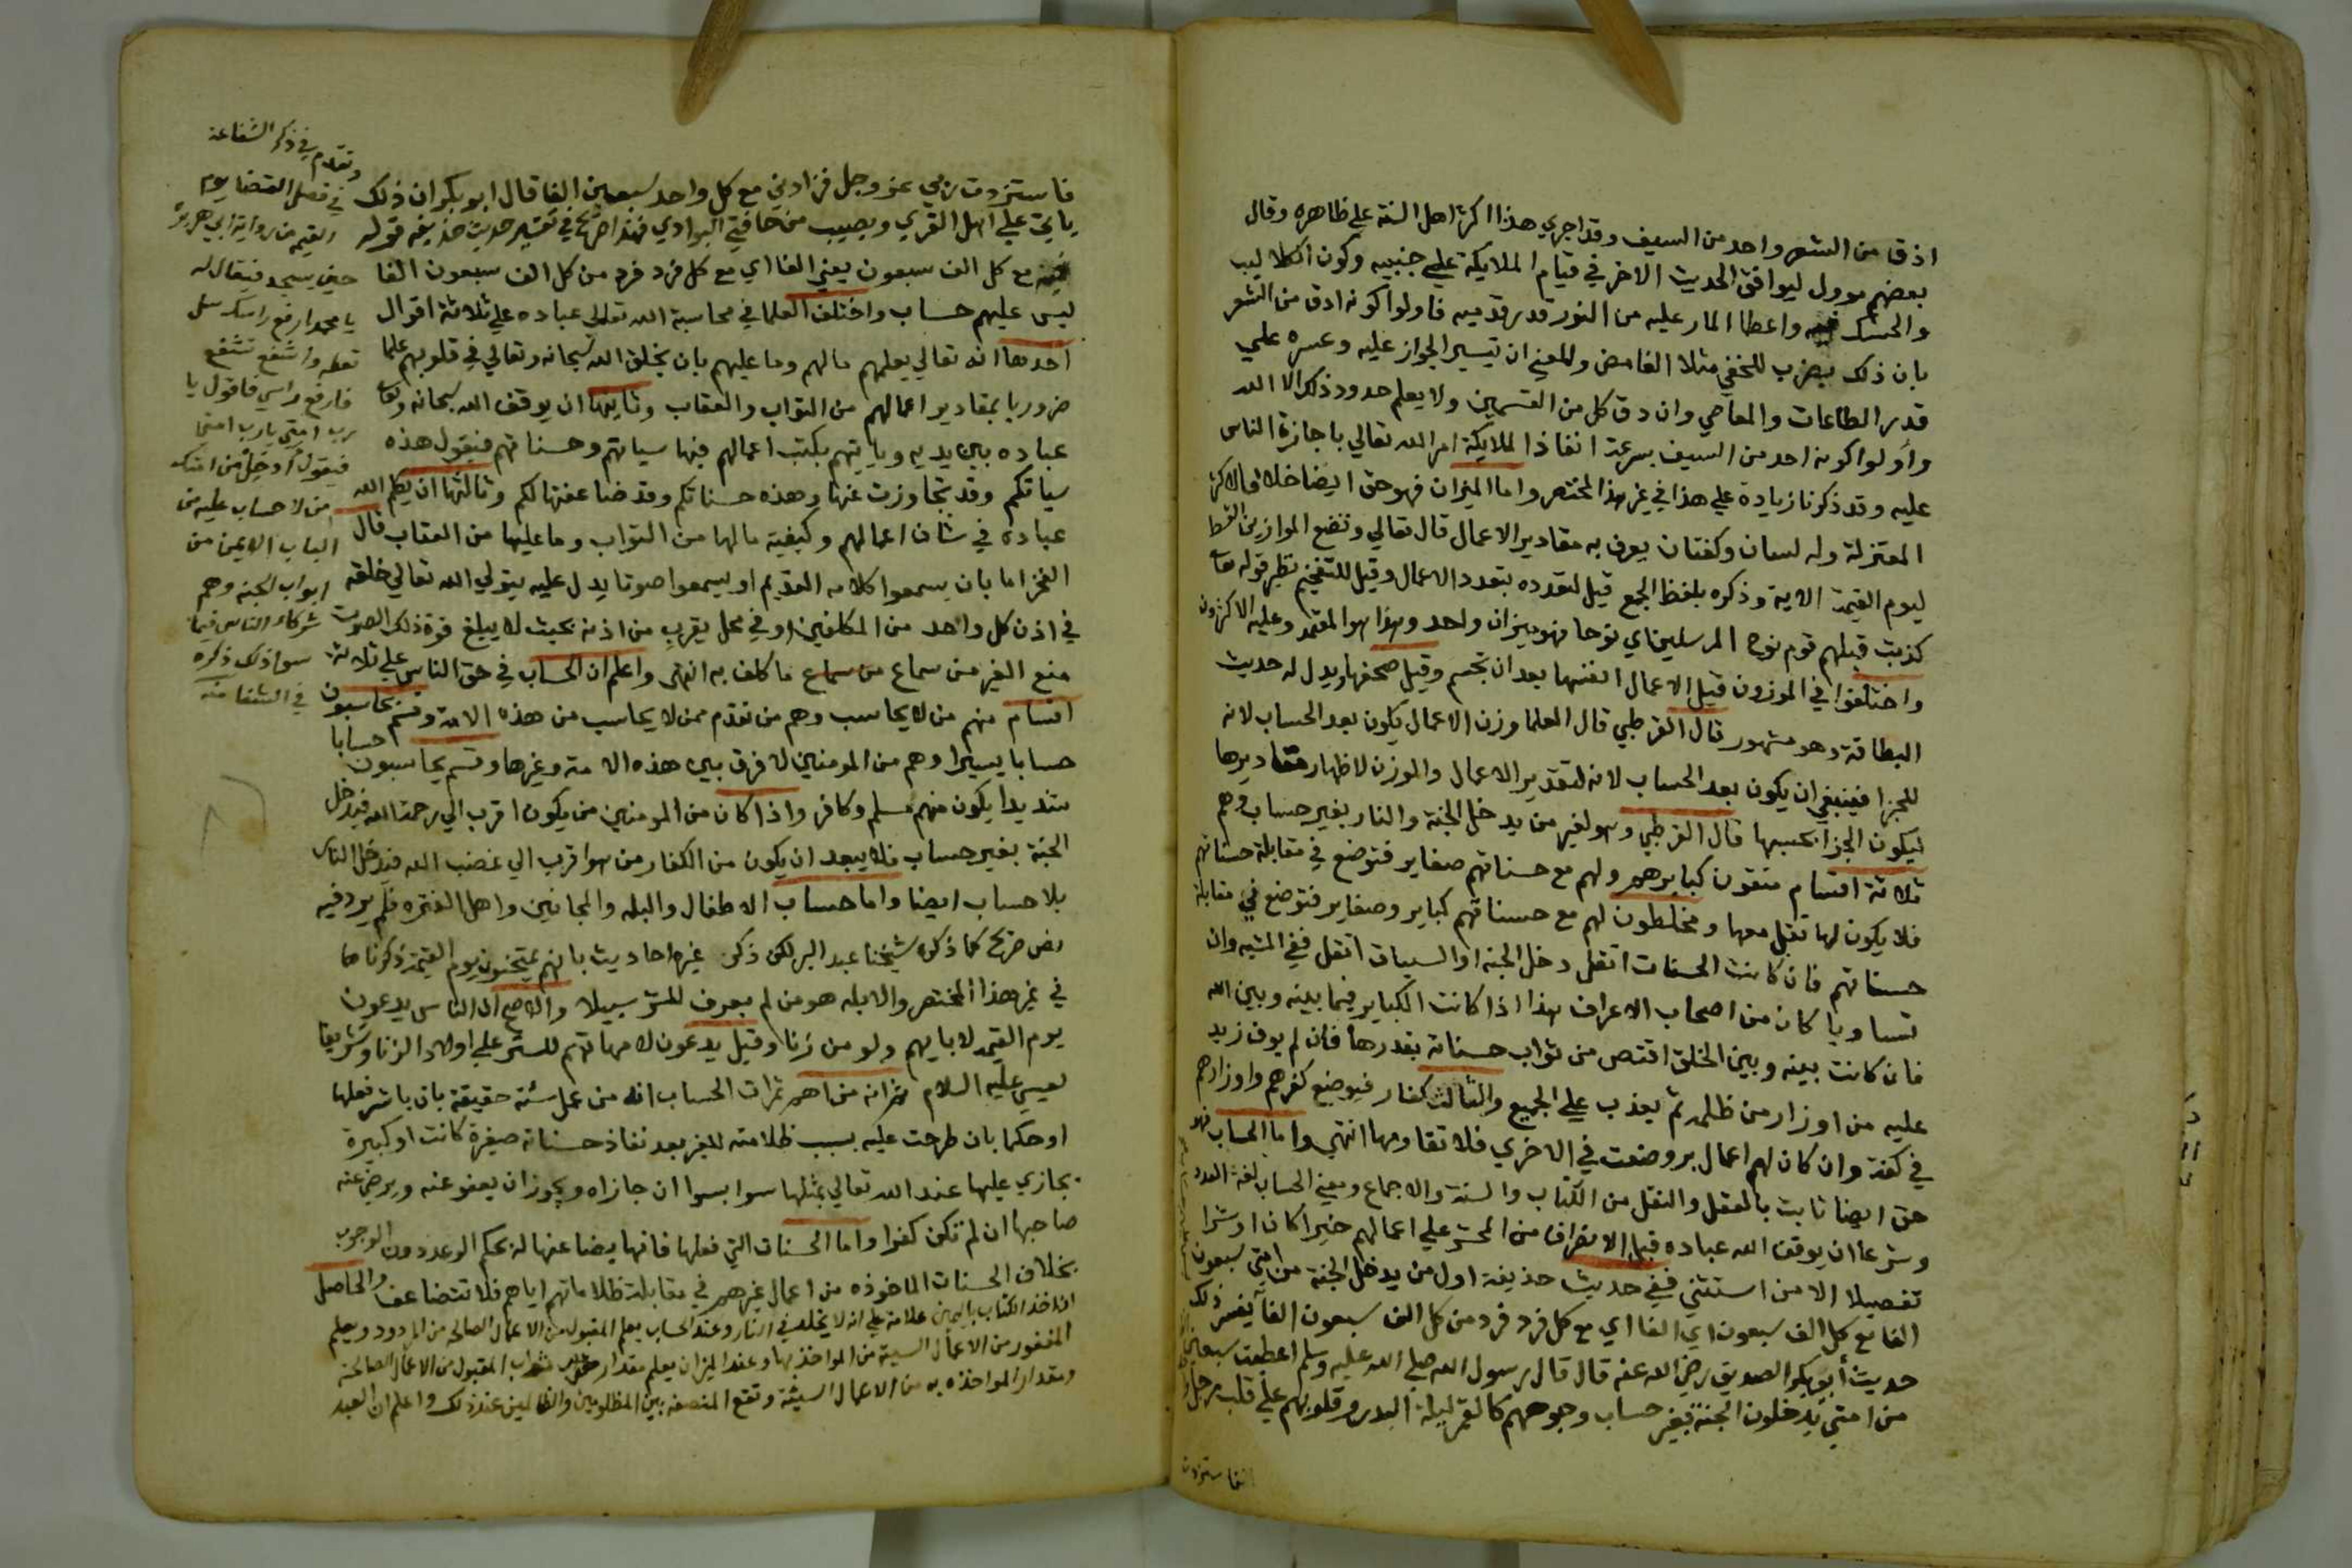 ادق من الشعر واحد من السيف وقد اجري هذا اكثر اهل السنة علي ظاهره وقال
بعضهم موول ليوافق الحديث الاخر في قيام الملايكة علي جنبيه وكون الكلاليب
والحسك فيه واعطا المار عليه من النور قدر قدميه فاولوا كونه ادق من الشعر
بان ذلك يضرب للخفي مثلا الغامض والمعني ان تيسير الجواز عليه وعسره علي
قدر الطاعات والمعاصي وان دق كل من القسمين ولا يعلم حدود ذلك الا الله
واولوا كونه احد من السيف بسرعة انفاذ الملايكة امر الله تعالي باجازة الناس
عليه وقد ذكرنا زيادة علي هذا في غير هذا المختصر واما الميزان فهو حق ايضا خلافا لاكثر
المعتزلة وله لسان وكفتان يعرف به مقادير الاعمال قال تعالي ونضع الموازين القسط
ليوم القيمة الاية وذكره بلفظ الجمع قيل لتعدده بتعدد الاعمال وقيل للتفخيم نظير قوله تعا
كذبت قبلهم قوم نوح المرسلين اي نوحا فهو ميزان واحد وهذا هو المعتمد وعليه الاكثرون
واختلفوا في الموزون قيل الاعمال انفسها بعد ان تجسم وقيل صحفها ويدل له حديث
البطاقة وهو مشهور قال القرطبي قال العلما وزن الاعمال يكون بعد الحساب لانه
للجزا فينبغي ان يكون بعد الحساب لانه لتقدير الاعمال والوزن لاظهار مقاديرها
ليكون الجزا بحسبها قال القرطبي وهو لغير من يدخل الجنة والنار بغير حساب وهم
ثلاثة اقسام متقون كبايرهم ولهم مع حسناتهم صغاير فتوضع في مقابلة حسناتهم
فلا يكون لها ثقل معها ومخلطون لهم مع حسناتهم كباير وصغاير فتوضع في مقابلة
حسناتهم فان كانت الحسنات اثقل دخل الجنة او السيات اثقل ففي المشيه وان
تساويا كان من اصحاب الاعراف هذا اذا كانت الكباير فيما بينه وبين الله
فان كانت بينه وبين الخلق اقتص من ثواب حسناته بقدرها فان لم يوف زيد
عليه من اوزار من ظلمه ثم يعذب علي الجميع والثالث كفار فيوضع كفرهم واوزارهم
في كفة وان كان لهم اعمال بر وضعت في الاخري فلا تقاومها انتهي واما الحساب فهو
حق ايضا ثابت بالعقل والنقل من الكتاب والسنة والاجماع ومعني الحساب لغة العدد
وشرعا ان يوقف الله عباده قبل الانصراف من المحشر علي اعمالهم خيرا كان او شرا
تفصيلا الا من استثني ففي حديث حذيفة اول من يدخل الجنة من امتي سبعون
الفا مع كل الف سبعون اي الفا اي مع كل فرد فرد من كل الف سبعون الفا يفسر ذلك
حديث أبو بكر الصديق رضي الله عنه قال قال رسول الله صلي الله عليه وسلم اعطيت سبعين
من امتي يدخلون الجنة بغير حساب وجوههم كالقمر ليلة البدر وقلوبهم علي قلب رجل
فاستزدت ربي عز وجل فزادني مع كل واحد سبعين الفا قال ابو بكر ان ذلك
ياتي علي اهل القري ويصيب من حافتي البوادي فهذا صريح في تفسير حديث حذيفه قوله
مع كل الف سبعون يعني الفا اي مع كل فرد فرد من كل الف سبعون الفا
ليس عليهم حساب واختلف العلما في محاسبة الله تعالي عباده علي ثلاثة اقوال
احدها انه تعالي يعلمهم مالهم وما عليهم بان يخلق الله سبحانه وتعالي في قلوبهم علما
ضروريا بمقادير اعمالهم من الثواب والعقاب وثانيها ان يوقف الله سبحانه وتعا
عباده بين يديه وياتيهم بكتب اعمالهم فيها سياتهم وحسناتهم فيقول هذه
سياتكم وقد تجاوزت عنها وهذه حسناتكم وقد ضاعفتها لكم وثالثها ان يكلم الله
عباده في شان اعمالهم وكيفية مالها من الثواب وما عليها من العقاب قال
الفخر اما بان يسمعوا كلامه القديم او يسمعوا صوتا يدل عليه يتولي الله تعالي خلقه
في اذن كل واحد من المكلفين او في محل يقرب من اذنه بحيث لا يبلغ قوة ذلك الصوت
منع الغير من سماع من سماع ما كلف به انتهى واعلم ان الحساب في حق الناس علي ثلاثة
اقسام منهم من لا يحاسب وهم من تقدم ممن لا يحاسب من هذه الامة وقسم يحاسبون
حسابا يسيرا وهم من المومنين لا فرق بين هذه الامة وغيرها وقسم يحاسبون حسابا
شديدا يكون منهم مسلم وكافر واذا كان من المومنين من يكون اقرب الي رحمة الله فيدخل
الجنة بغير حساب فلا يبعد ان يكون من الكفار من هو اقرب الي غضب الله فيدخل النار
بلا حساب ايضا واما حساب الاطفال والبله والمجانين واهل الفترة فلم يرد فيه
نص صريح كما ذكره شيخنا عبد البر لكن ذكر غيره احاديث بانهم يمتحنون يوم القيمة ذكرناها
في غير هذا المختصر والابله هو من لم يعرف للشر سبيلا والاصح ان الناس يدعون
يوم القيمة لابايهم ولو من زنا وقيل يدعون لامهاتهم للستر علي اولاد الزنا وتشريفا
لعيسي عليه السلام ثم انه من اهم ثمرات الحساب انه من عمل سئة حقيقة بان باشر فعلها
او حكما بان طرحت عليه بسبب ظلامته للغير بعد نفاذ حسناته صغيرة كانت او كبيرة
يجازي عليها عند الله تعالي بمثلها سوا بسوا ان جازاه ويجوز ان يعفو عنه ويرضي عنه
صاحبها ان لم تكن كفرا واما الحسنات التي فعلها فانها يضاعفها له بحكم الوعد دون الوجوب
بخلاف الحسنات الماخوذه من اعمال غيرهم في مقابلة ظلاماتهم اياهم فلا تتضاعف والحاصل
ان اخذ الكتاب باليمين علامة علي انه لا يخلد في النار وعند الحساب يعلم المقبول من الاعمال الصالحه من المردود ويعلم
المغفور من الاعمال السيئة من المواخذ بها وعند الميزان يعلم مقدار ثواب المقبول من الاعمال الصالحة
ومقدار المواخذه به من الاعمال السيئة وتقع المنصفه بين المظلومين والظالمين عند ذلك واعلم ان العبد
وتقدم في ذكر الشفاعة
في فصل القضا يوم
القيمة من رواية ابي هريرة
حين يسجد فيقال له
يا محمد ارفع راسك سل
تعطه واشفع تشفع
فارفع راسي فاقول يا
رب امتي يا رب امتي
فيقول أدخل من امتك
من لا حساب عليه من
الباب الايمن من
ابواب الجنة وهم
شركاء الناس فيما
سوا ذلك ذكره
في الشفا منه